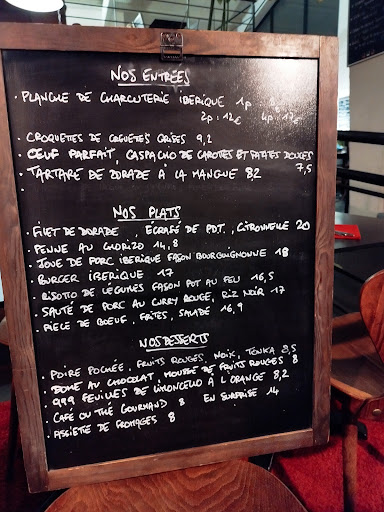 NOS ENTRÉES
. PLANCHE DE CHARCUTERIE IBERIQUE 1p
2p : 12€ 4p : 17€
. CROQUETTES DE CREVETTES GRISES 9,2
. ŒUF PARFAIT, GASPACHO DE CAROTTES ET PATATES DOUCES 7,5
. TARTARE DE DORADE À LA MANGUE 8,2
.
NOS PLATS
. FILET DE DORADE, ÉCRASÉ DE PDT., CITRONNELLE 20
. PENNE AU CHORIZO 14,8
. JOUE DE PORC IBERIQUE FASON BOURGUIGNONNE 18
. BURGER IBERIQUE 17
. RISOTTO DE LÉGUMES FASON POT AU FEU 16,5
. SAUTÉ DE PORC AU CURRY ROUGE, RIZ NOIR 17
. PIÈCE DE BOEUF, FRITES, SALADE 16,9
NOS DESSERTS
. POIRE POCHÉE, FRUITS ROUGES, NOIX, TONKA 8,5
. DOME AU CHOCOLAT, MOUSSE DE FRUITS ROUGES 8
. 999 FEUILLES DE LIMONCELLO À L ORANGE 8,2
. CAFÉ OU THÉ GOURMAND 8 EN SURPRISE 14
. ASSIETTE DE FROMAGES 8